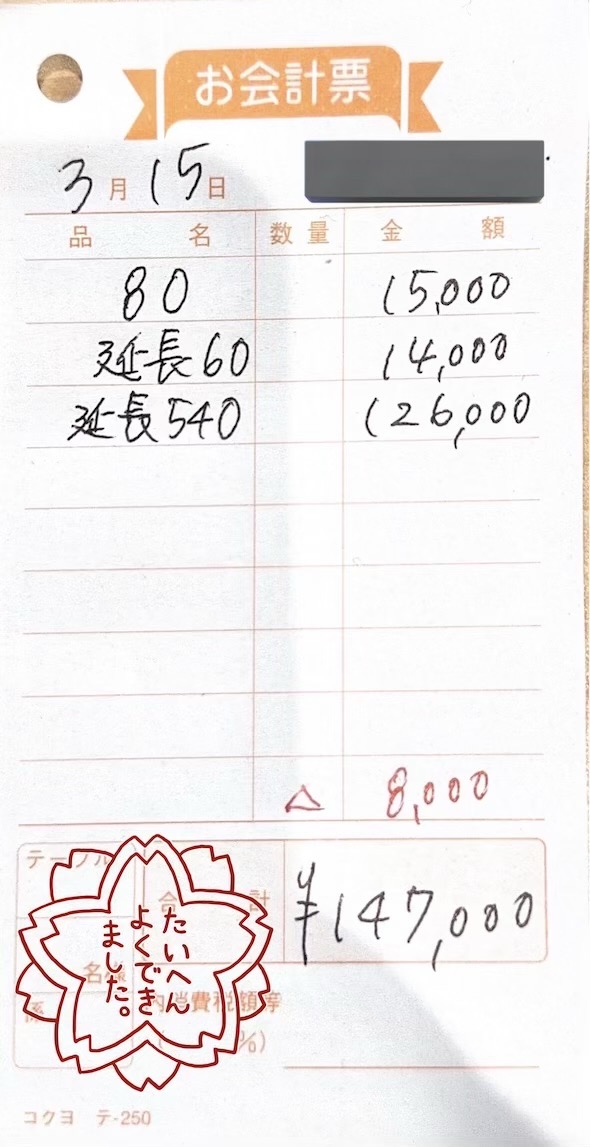 お会計票
3月15日
品名 数量 金額
80 15,000
延長60 14,000
延長540 126,000
△ 8,000
テーブル
合計 ¥147,000
名様
係
内消費税額等
%)
たいへん
よくでき
ました。
コクヨ テ-250